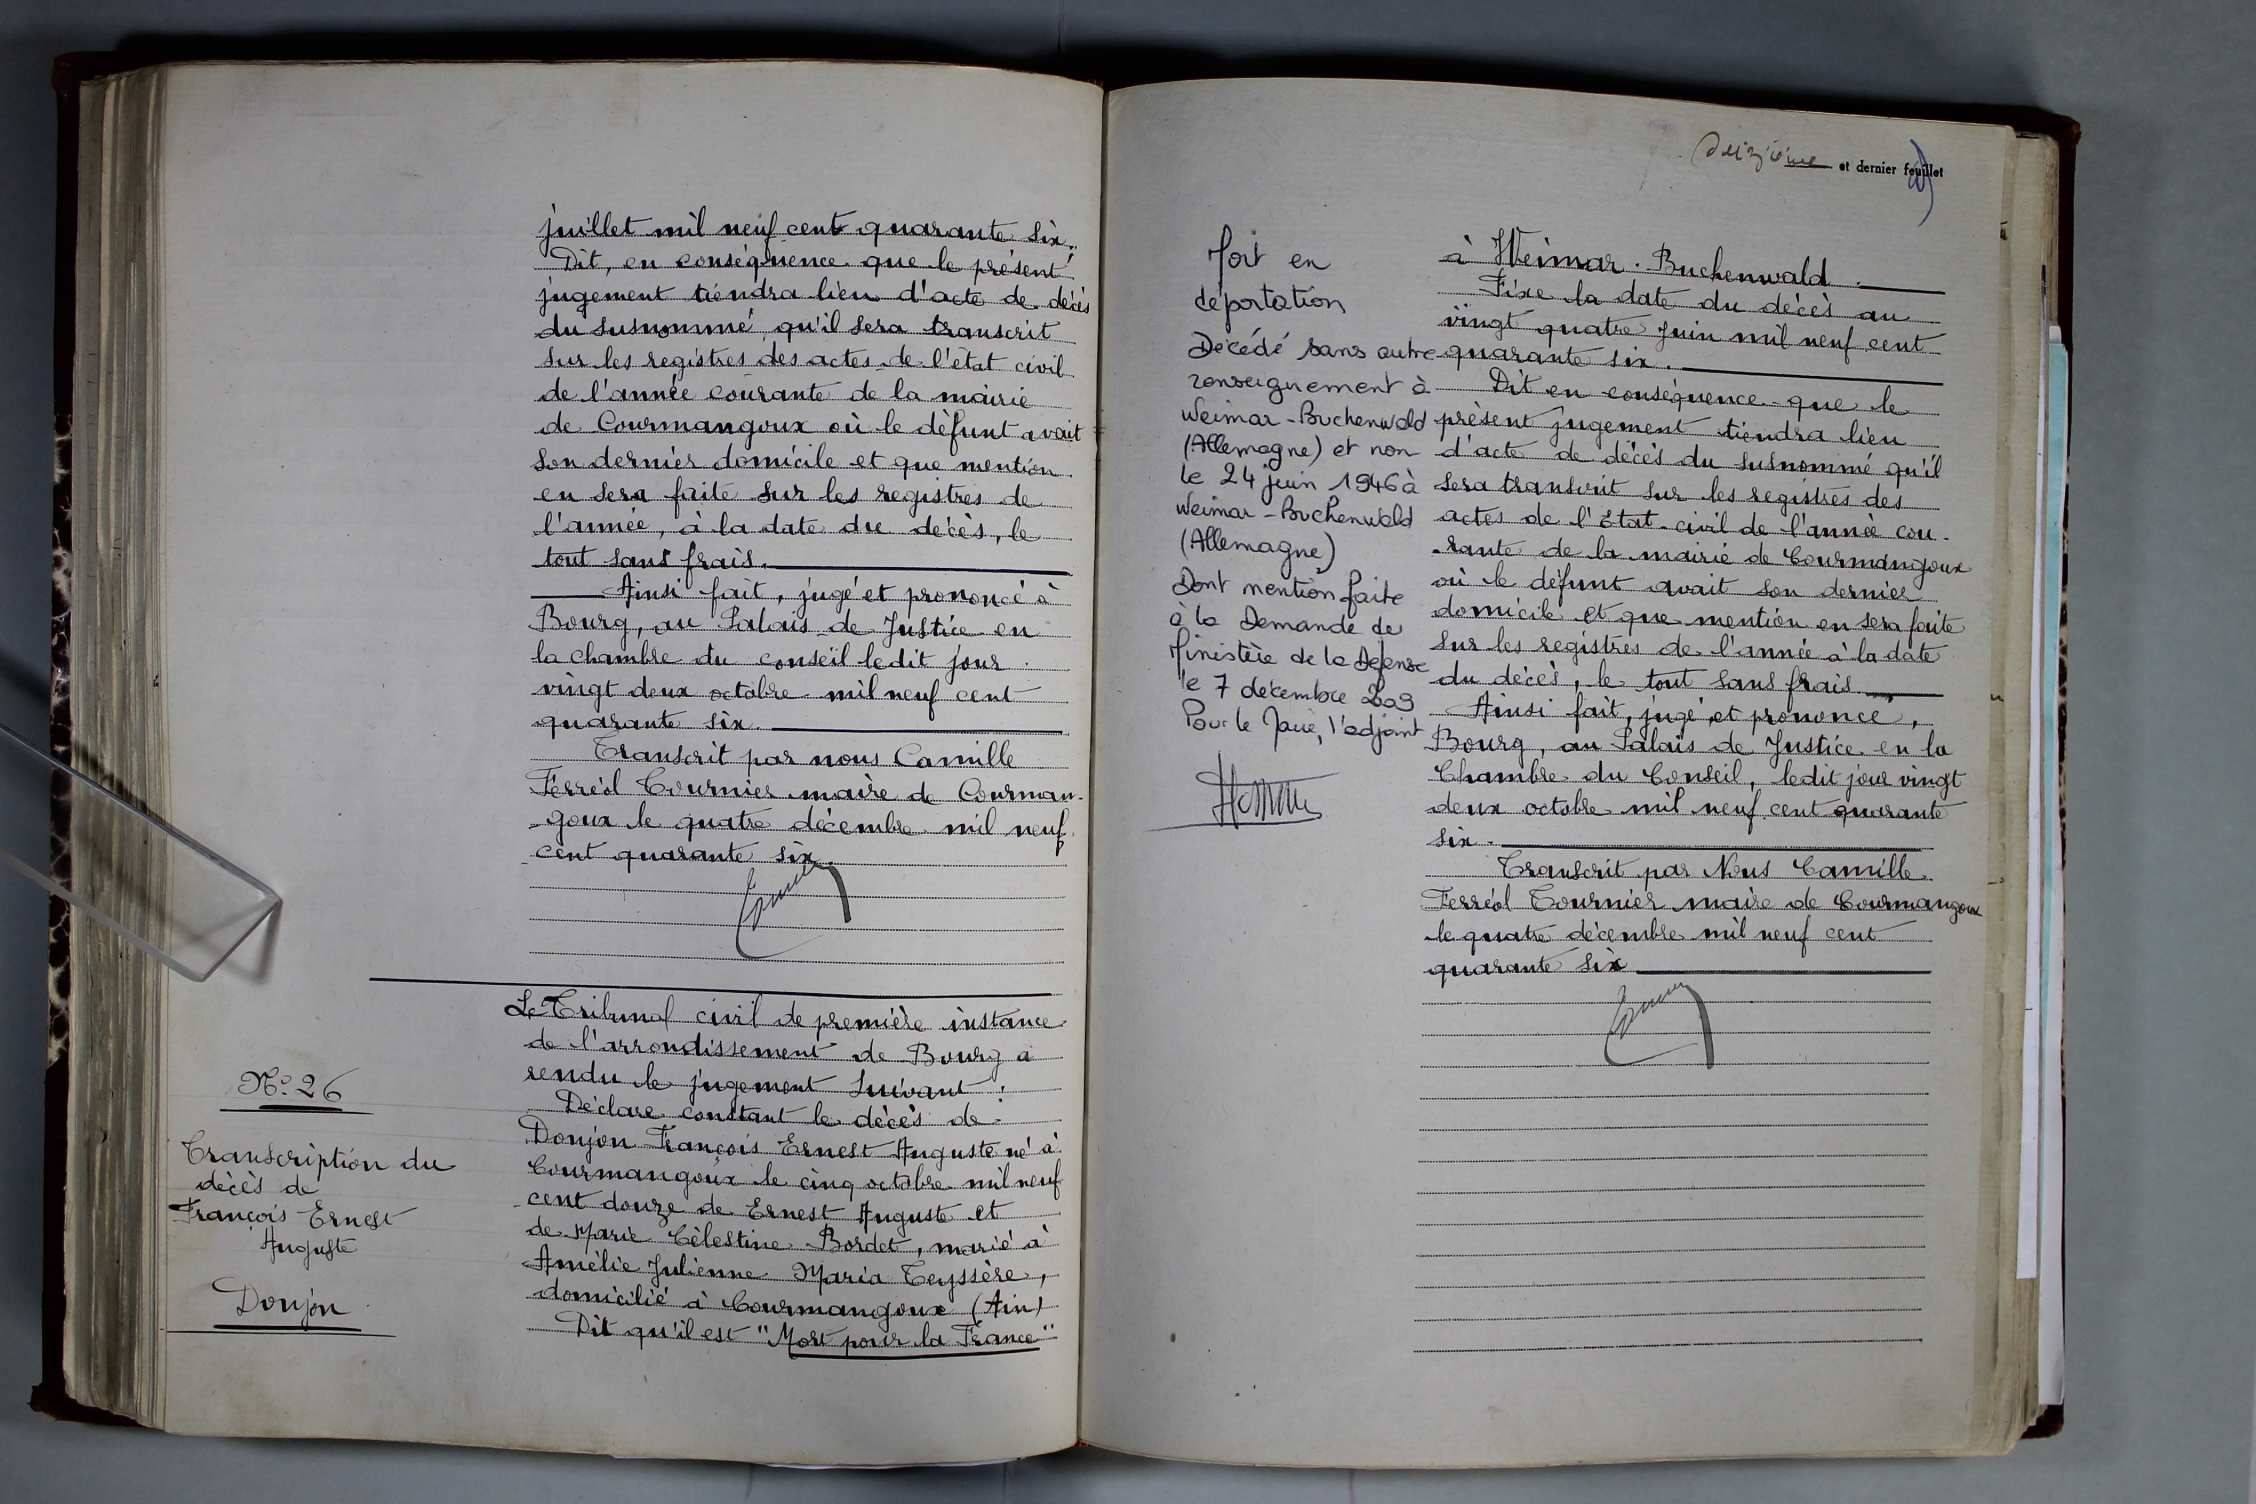 juillet mil neuf cent quarante six.
Dit, en conséquence que le présent
jugement tiendra lieu d'acte de décès
du susnommé qu'il sera transcrit
sur les registres des actes de l'état civil
de l'année courante de la mairie
de Courmangoux où le défunt avait
son dernier domicile et que mention
en sera faite sur les registres de
l'année, à la date du décès, le
tout sans frais.
Ainsi fait, jugé et prononcé à
Bourg, au Palais de Justice en
la chambre du conseil ledit jour
vingt deux octobre mil neuf cent
quarante six.
Transcrit par nous Camille
Ferréol Tournier maire de Courman-
-goux le quatre décembre mil neuf
cent quarante six.
Le Tribunal civil de première instance
de l'arrondissement de Bourg a
rendu le jugement suivant :
Déclare constant le décès de
Donjon François Ernest Auguste né à
Courmangoux le cinq octobre mil neuf
cent douze de Ernest Auguste et
de Marie Célestine Bordet, marié à
Amélie Julienne Maria Teyssère,
domicilié à Courmangoux (Ain)
Dit qu'il est "Mort pour la France"
No. 26
Transcription du
décès de
François Ernest
Auguste
Donjon
deuzième et dernier feuillet
à Weimar. Buchenwald.
Fixe la date du décès au
vingt quatre juin mil neuf cent
quarante six.
Dit en conséquence que le
présent jugement tiendra lieu
d'acte de décès du susnommé qu'il
sera transcrit sur les registres des
actes de l'Etat-civil de l'année cou-
-rante de la mairie de Courmangoux
où le défunt avait son dernier
domicile et que mention en sera faite
sur les registres de l'année à la date
du décès, le tout sans frais
Ainsi fait, jugé et prononcé,
Bourg, au Palais de Justice en la
Chambre du Conseil, ledit jour vingt
deux octobre mil neuf cent quarante
six.
Transcrit par Nous Camille
Ferréol Tournier maire de Courmangoux
le quatre décembre mil neuf cent
quarante six
Mort en
déportation
Décédé sans autre
renseignement à
Weimar-Buchenwald
(Allemagne) et non
le 24 juin 1946 à
Weimar-Buchenwald
(Allemagne)
Dont mention faite
à la Demande de
Ministère de la Défense
le 7 décembre 2009
Pour le Maire, l'adjoint